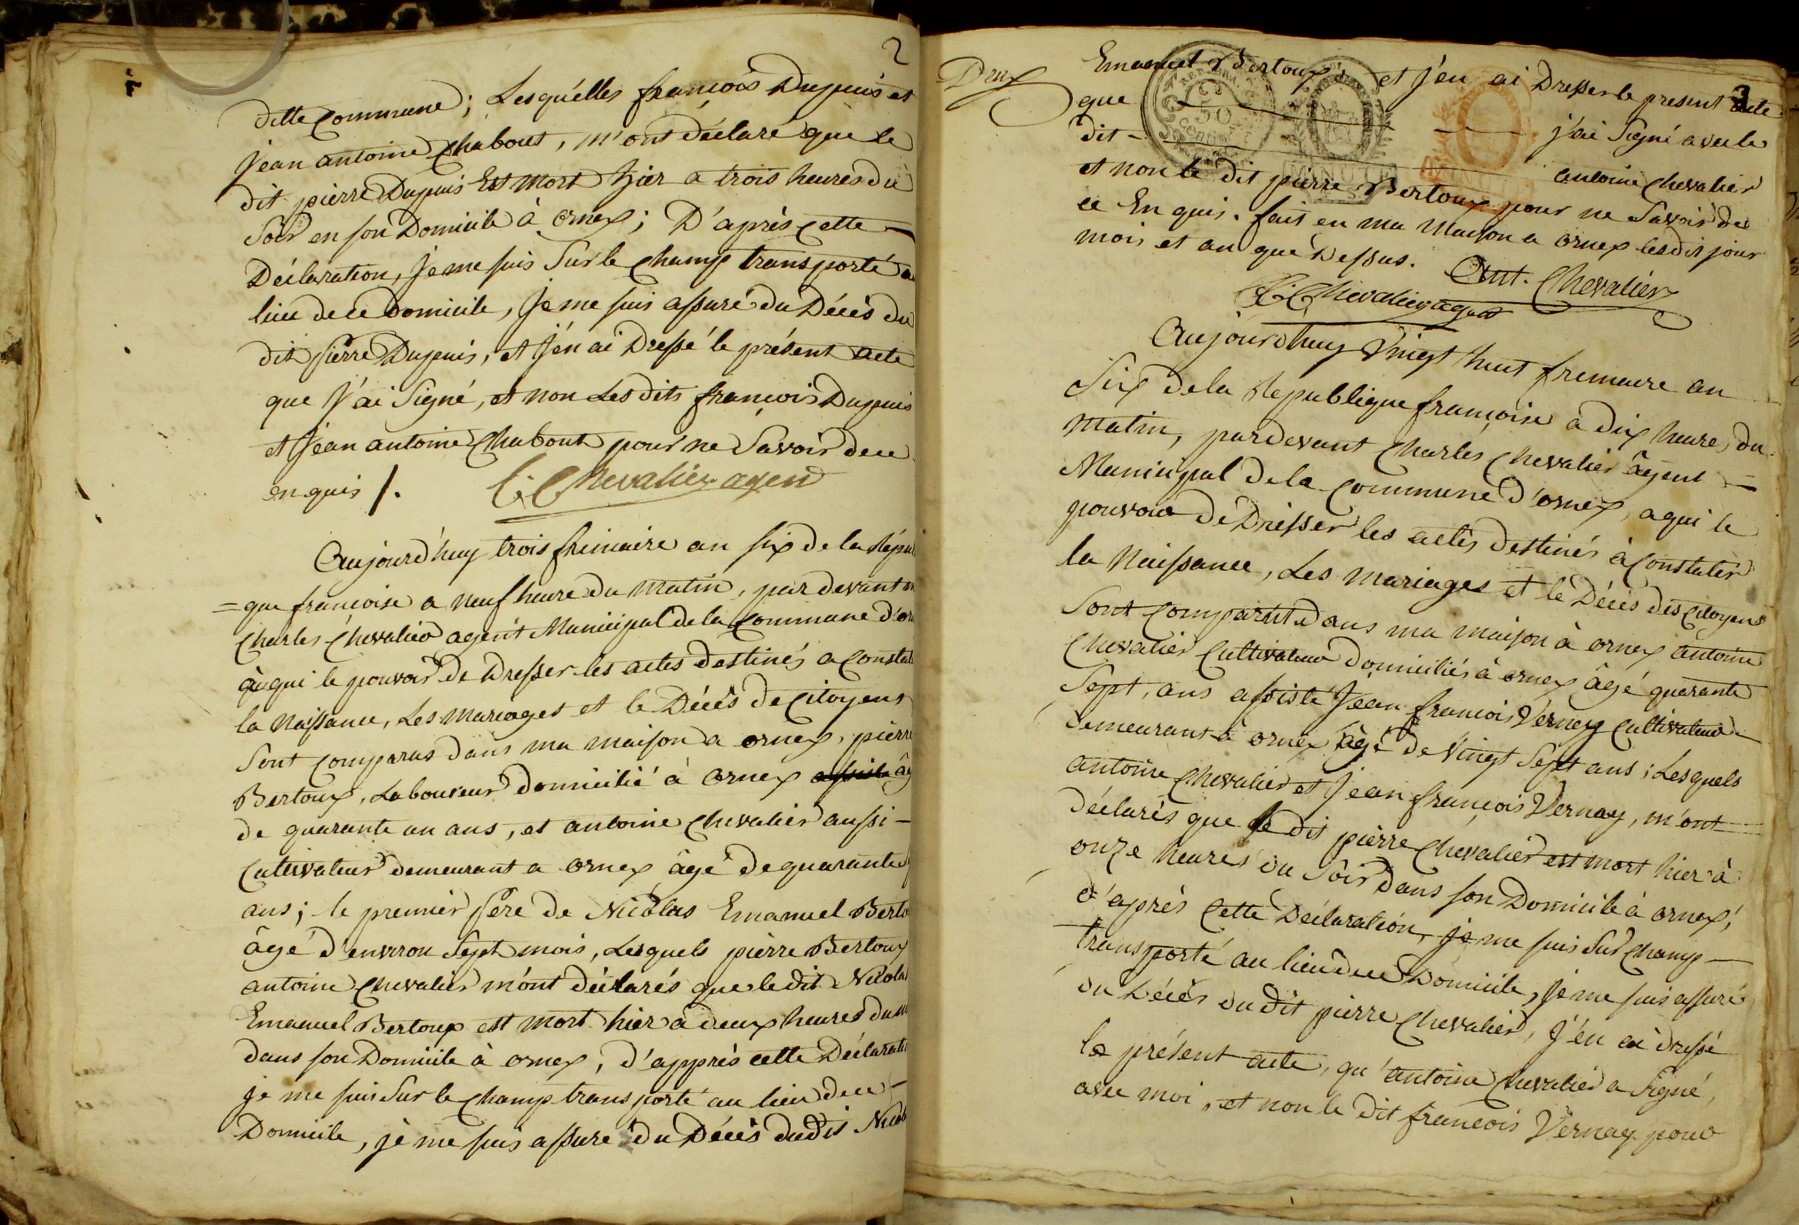 2
ditte commune; Lesquelles françois Dupuis et
jean antoine Chabout, m'ont déclaré que le
dit pierre Dupuis Est mort hier a trois heures du
Soir en son Domicile à ornex; D'après cette
Déclaration, je me suis Sur le champ transporté au
lieu de ce Domicile, je me suis assuré du Décès du
dit pierre Dupuis, et j'én ai Dressé le présent acte
que j'ai Signé, et non Les dits françois Dupuis
et jean antoine Chabout pour ne Savoir de ce
en quis /. C. Chevalier agent
Aujourd'huy trois frimaire an six de la Répu
= que françoise a neuf heure du matin, par devant
Charles Chevalier agent Municipal de la Commune d'or
à qui le pouvoir de Dresser les actes destinés a Constat
la Naissance, Les Mariages et le Décès de Citoyens
Sont comparus dans ma maison a ornex, pierre
Bertoux, Laboureur domicilié à ornex assisté âg
de quarante un ans, et antoine Chevalier aussi -
Cultivateur demeurant a ornex âgé de quarante
ans; le premier père de Nicolas Emanuel Berto
âgé d'environ Sept mois, Lesquels pierre Bertoux
antoine Chevalier m'ónt déclarés que le dit Nicola
Emanuel Bertoux est mort hier à deux heures du m
dans son Domicile à ornex; d'apprès cette Déclarati
je me suis Sur le champ transporté au lieu de ce -
Domicile, je me suis assuré du Décès du dit Nicol
Deux
3
Emanuel Bertoux et j'en ai Dresser le present acte
que j'ai Signé avec le
dit - antoine Chevalier
50
Centimes
et non le dit pierre Bertoux pour ne Savoir de
ce En quis. fait en ma Maison a ornex lesdit jour
mois et an que Dessus. Ant. Chevalier
C. Chevalier agent
Aujourdhuy Vingt huit frimaire an
Six de la Republique françoise à dix heure du
Matin, pardevant Charles Chevalier agent
Municipal de la Commune d'ornex, a qui le
pouvoir de Dresser les actes destinés à Constater
la Naissance, Les Mariages et le Décès des Citoyens
Sont comparut dans ma maison à ornex antoine
Chevalier Cultivateur Domiciliés à ornex âgé quarante
Sept, ans assisté Jean françois Vernay Cultivateur
demeurant à ornex âgé de Vingt Sept ans; Lesquels
antoine Chevalier et Jean françois Vernay, m'ont
déclarés que le dit pierre Chevalier est mort hier à
onze heures du Soir dans son Domicile à ornex;
d'après cette Déclaration, je me suis Sur Champ
transporté au lieu de ce Domicile, je me suis assuré
du Décès du dit pierre Chevalier, j'én ai dressé
le présent acte, qu'antoine Chevalier a Signé,
avec moi, et non le dit françois Vernay pour